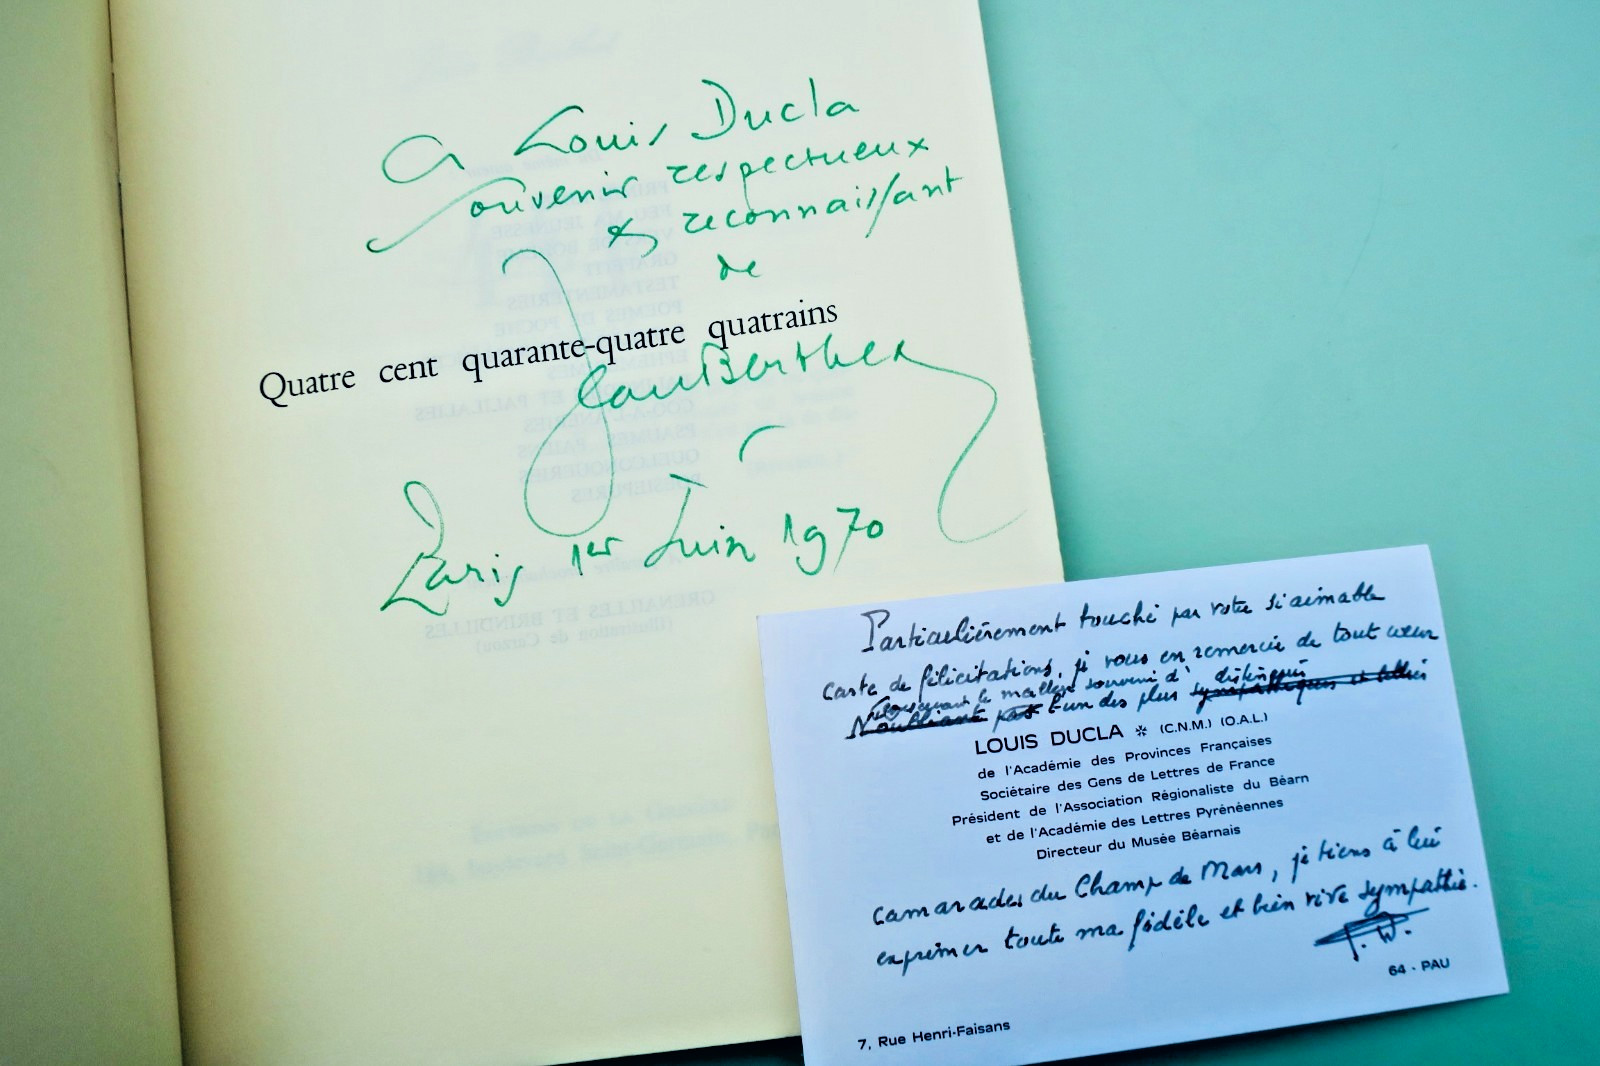 A Louis Ducla
souvenir respectueux
& reconnaissant
de
Quatre cent quarante-quatre quatrains
Jean Berthet
Paris 1er Juin 1970
Particulièrement touché par votre si aimable
carte de félicitations, je vous en remercie de tout cœur
le meilleur souvenir d' distingués
N'oubliant pas l'un des plus sympathiques et
LOUIS DUCLA ✻ (C.N.M.) (O.A.L.)
de l'Académie des Provinces Françaises
Sociétaire des Gens de Lettres de France
Président de l'Association Régionaliste du Béarn
et de l'Académie des Lettres Pyrénéennes
Directeur du Musée Béarnais
camarades du Champ de Mars, je tiens à lui
exprimer toute ma fidèle et bien vive sympathie.
64 - PAU
7, Rue Henri-Faisans